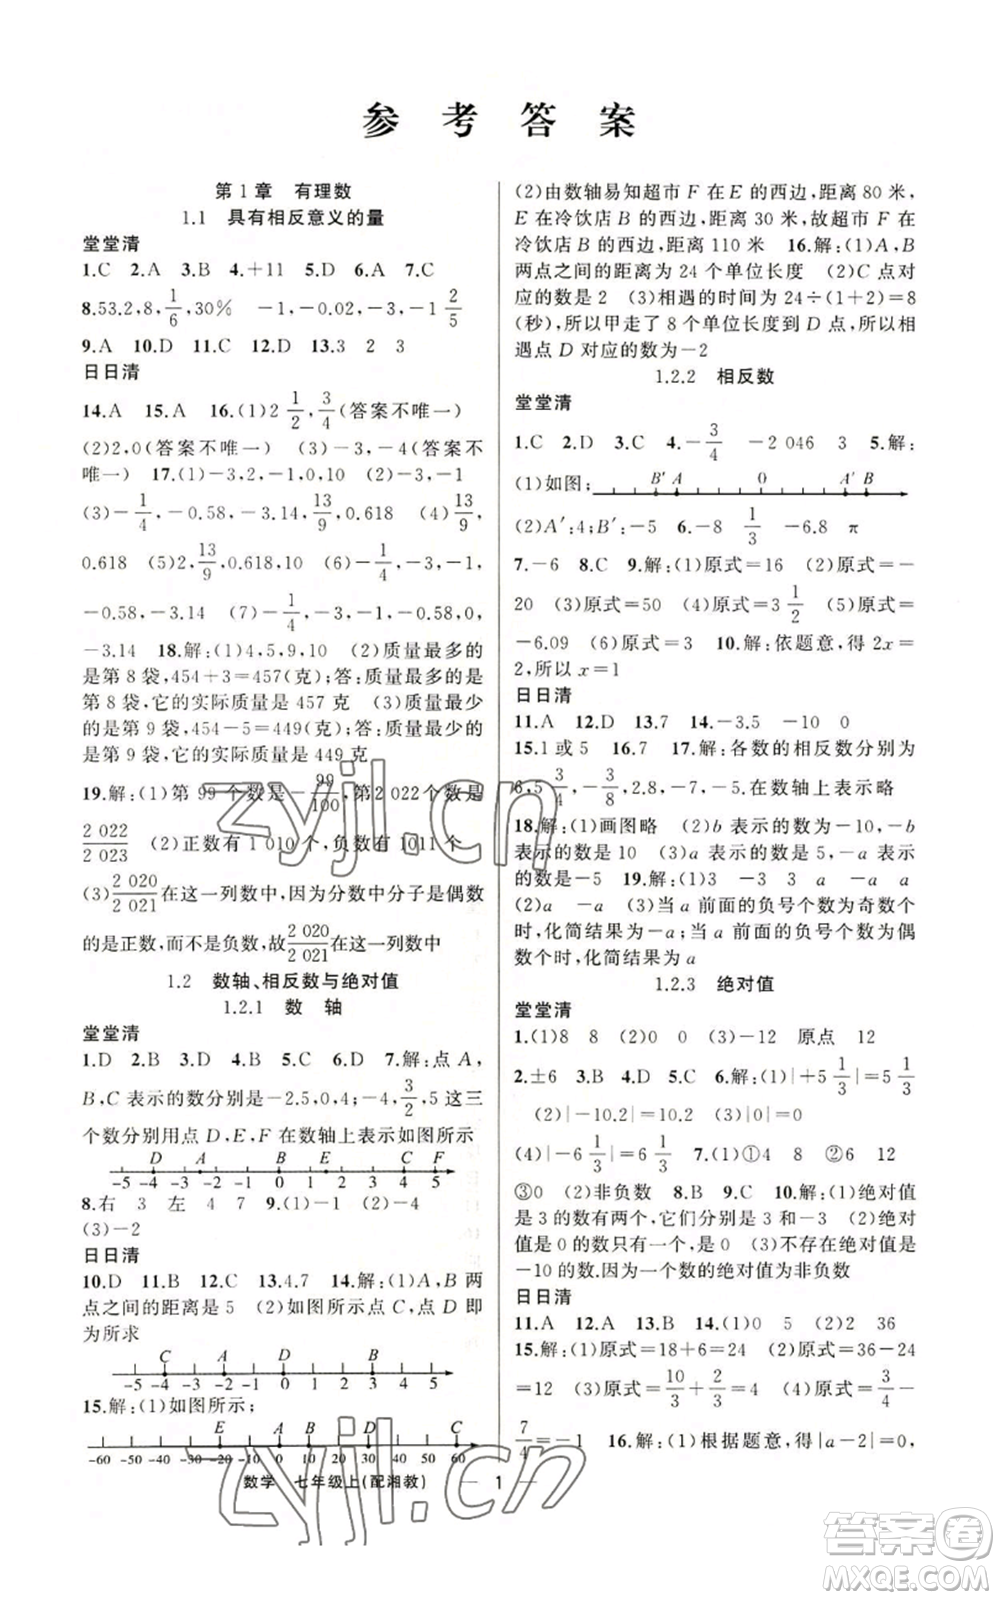 参 考 答 案
第1章 有理数
1.1 具有相反意义的量
堂堂清
1.C 2.A 3.B 4.+11 5.D 6.A 7.C
8.53,2,8,1/6,30% -1,-0.02,-3,-1 2/5
9.A 10.D 11.C 12.D 13.3 2 3
日日清
14.A 15.A 16.(1)2 1/2,3/4(答案不唯一)
(2)2,0(答案不唯一) (3)-3,-4(答案不
唯一) 17.(1)-3,2,-1,0,10 (2)-3,-1
(3)-1/4,-0.58,-3.14,13/9,0.618 (4)13/9,
0.618 (5)2,13/9,0.618,10 (6)-1/4,-3,-1,
-0.58,-3.14 (7)-1/4,-3,-1,-0.58,
-3.14 18.解:(1)4,5,9,10 (2)质量最多的
是第8袋,454+3=457(克);答:质量最多的是
第8袋,它的实际质量是457克 (3)质量最少
的是第9袋,454-5=449(克);答:质量最少的是
第9袋,它的实际质量是449克
19.解:(1)第99个数是-99/100,第2 022个数是
2 022/2 023 (2)正数有1 010个,负数有1011个
(3)2 020/2 021在这一列数中,因为分数中分子是偶数
的是正数,而不是负数,故2 020/2 021在这一列数中
1.2 数轴、相反数与绝对值
1.2.1 数 轴
堂堂清
1.D 2.B 3.D 4.B 5.C 6.D 7.解:点A,
B,C表示的数分别是-2.5,0,4;-4,3/2,5这三
个数分别用点D,E,F在数轴上表示如图所示
D A B E C F
-5 -4 -3 -2 -1 0 1 2 3 4 5
8.右 3 左 4 7 9.(1)-1 (2)4
(3)-2
日日清
10.D 11.B 12.C 13.4,7 14.解:(1)A,B两
点之间的距离是5 (2)如图所示点C,点D即
为所求
C A D B
-5 -4 -3 -2 -1 0 1 2 3 4 5
15.解:(1)如图所示;
E A B D C
-60 -50 -40 -30 -20 -10 0 10 20 30 40 50 60
(2)由数轴易知超市F在E的西边,距离80米,
E在冷饮店B的西边,距离30米,故超市F在
冷饮店B的西边,距离110米 16.解:(1)A,B
两点之间的距离为24个单位长度 (2)C点对
应的数是2 (3)相遇的时间为24÷(1+2)=8
(秒),所以甲走了8个单位长度到D点,所以相
遇点D对应的数为-2
1.2.2 相反数
堂堂清
1.C 2.D 3.C 4.-3/4 -2 046 3 5.解:
(1)如图; B′ A 0 A′ B
(2)A′:4;B′:-5 6.-8 1/3 -6.8 π
7.-6 8.C 9.解:(1)原式=16 (2)原式=-
20 (3)原式=50 (4)原式=3 1/2 (5)原式=
-6.09 (6)原式=3 10.解:依题意,得2x=
2,所以x=1
日日清
11.A 12.D 13.7 14.-3.5 -10 0
15.1或5 16.7 17.解:各数的相反数分别为
6,5 3/4,-3/8,2.8,-7,-5.在数轴上表示略
18.解:(1)画图略 (2)b表示的数为-10,-b
表示的数是10 (3)a表示的数是5,-a表示
的数是-5 19.解:(1)3 -3 3 a -a a
(2)a -a (3)当a前面的负号个数为奇数个
时,化简结果为-a;当a前面的负号个数为偶
数个时,化简结果为a
1.2.3 绝对值
堂堂清
1.(1)8 8 (2)0 0 (3)-12 原点 12
2.±6 3.B 4.D 5.C 6.解:(1)|+5 1/3|=5 1/3
(2)|-10.2|=10.2 (3)|0|=0
(4)|-6 1/3|=6 1/3 7.(1)①4 8 ②6 12
③0 (2)非负数 8.B 9.C 10.解:(1)绝对值
是3的数有两个,它们分别是3和-3 (2)绝对
值是0的数只有一个,是0 (3)不存在绝对值是
-10的数.因为一个数的绝对值为非负数
日日清
11.A 12.A 13.B 14.(1)0 5 (2)2 36
15.解:(1)原式=18+6=24 (2)原式=36-24
=12 (3)原式=10/3+2/3=4 (4)原式=3/4-
7/4=-1 16.解:(1)根据题意,得|a-2|=0,
数学 七年级上(配湘教) — 1 —
zyjl.cn
zyjl.cn
答案圈
MXQE.COM